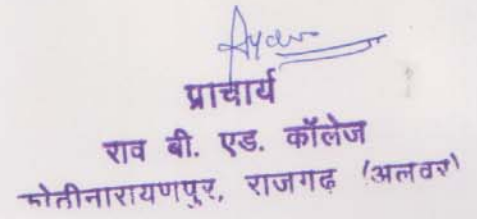 प्राचार्य
राव बी. एड. कॉलेज
कोतीनारायणपुर, राजगढ़ (अलवर)